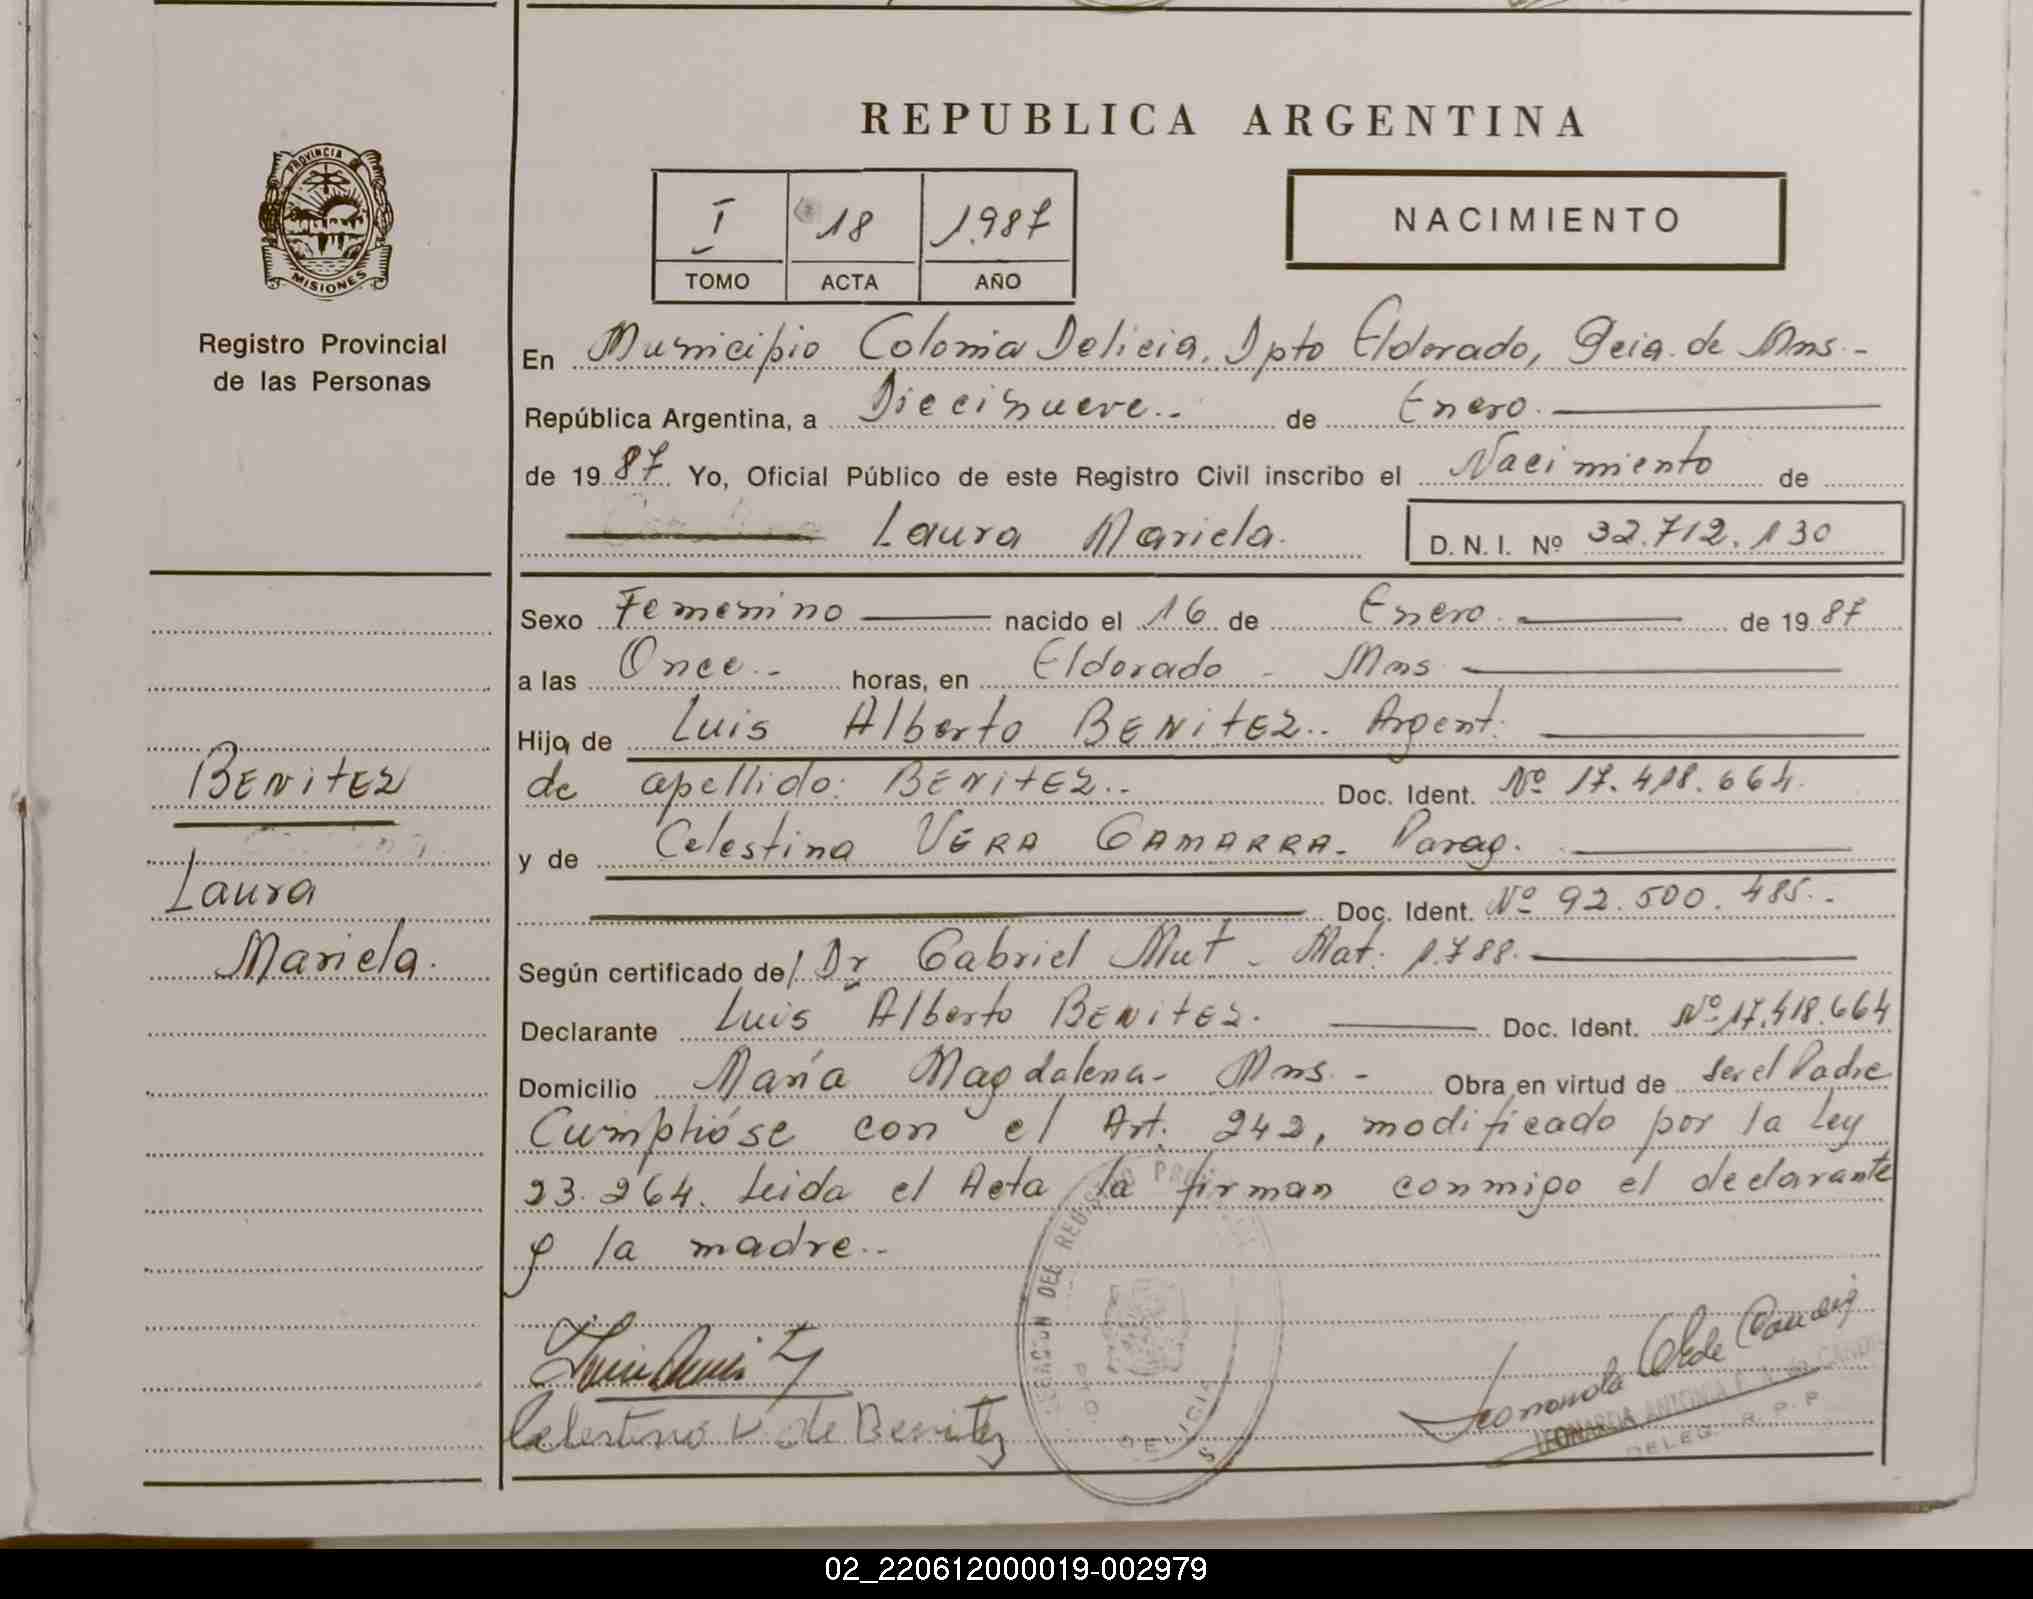 REPUBLICA ARGENTINA
PROVINCIA
MISIONES
Registro Provincial
de las Personas
I 18 1.987
TOMO ACTA AÑO
NACIMIENTO
En Municipio Colonia Delicia, Dpto Eldorado, Pcia. de Mns.-
República Argentina, a Diecinueve.. de Enero.
de 19 87 Yo, Oficial Público de este Registro Civil inscribo el Nacimiento de
Laura Mariela. D. N. I. Nº 32.712.130
Sexo Femenino nacido el 16 de Enero. de 19 87
a las Once.- horas, en Eldorado - Mns
Hija de Luis Alberto BENITEZ.. Argent.
de apellido: BENITEZ.. Doc. Ident. Nº 17.418.664.
y de Celestina VERA GAMARRA. Parag.
Doc. Ident. Nº 92.500.485..
Según certificado del Dr Gabriel Mut - Mat. 1.788.
Declarante Luis Alberto BENITEZ. Doc. Ident. Nº 17.418.664
Domicilio María Magdalena- Mns.- Obra en virtud de ser el Padre
Cumplióse con el Art. 242, modificado por la Ley
23.264. Leida el Acta la firman conmigo el declarante
y la madre..
BENITEZ
Laura
Mariela.
Celestina V de Benitez
DEL REGISTRO
DELICIA
LEONARDA ANTONIA
DELEG. R. P. P.
02_220612000019-002979